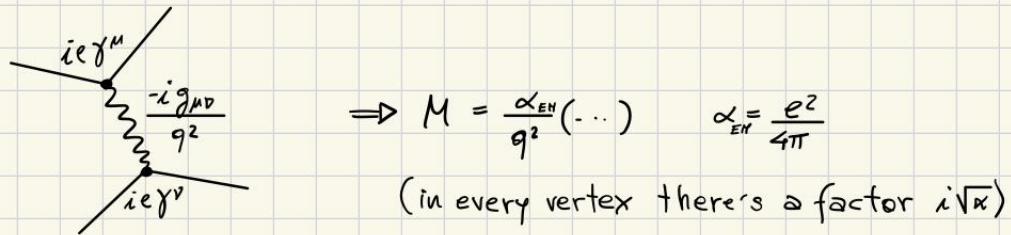 ieγ^μ
-ig_μν / q²
ieγ^ν
⇒ M = α_EM / q² (...)    α_EM = e² / 4π
(in every vertex there's a factor i√α)